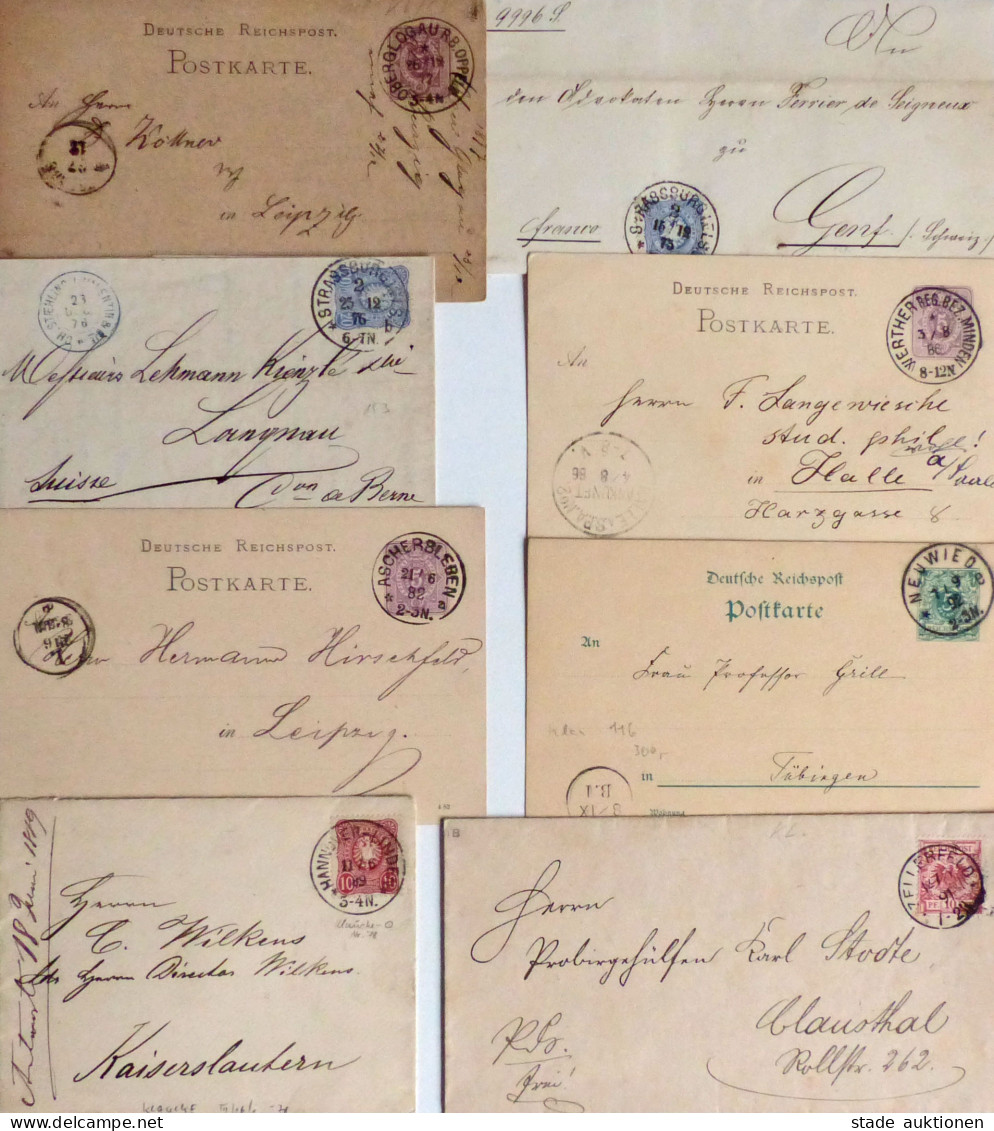 DEUTSCHE REICHSPOST.
POSTKARTE.
OBERGLOGAU R.B. OPPELN
An Herrn
Köllner
in Leipzig
9996 S.
An
den Advokaten Herrn Ferrier de Seigneux
zu
Genf. /: Schweiz
franco
STRASSBURG I. ELS.
2
STRASSBURG I. ELS.
2
25 12
76
6-7N.
23
76
Messieurs Lehmann Kienzle
Langnau
Suisse
Con de Berne
DEUTSCHE REICHSPOST.
POSTKARTE.
WERTHER REG. BEZ. MINDEN
3/8
86
8-12N
An
Herrn F. Langewiesche
stud. phil.
in Halle a/Saale
Harzgasse 8
DEUTSCHE REICHSPOST.
POSTKARTE.
ASCHERSLEBEN
21/6
82
2-3N.
Herrn Hermann Hirschfeld,
in Leipzig.
Deutsche Reichspost
Postkarte
NEUWIED
9
92
2-3N.
An
Frau Professor Grill
116
300,-
in Tübingen
Wohnung
B.1
HANNOVER-LINDEN
89
3-4N.
10
Herrn
C. Wilkens
Herrn Director Wilkens.
Kaiserslautern
ZELLERFELD
1-2N
Herrn
Probirgehülfen Karl Stodte
Clausthal
Rollstr. 262.
Frei!
stade auktionen